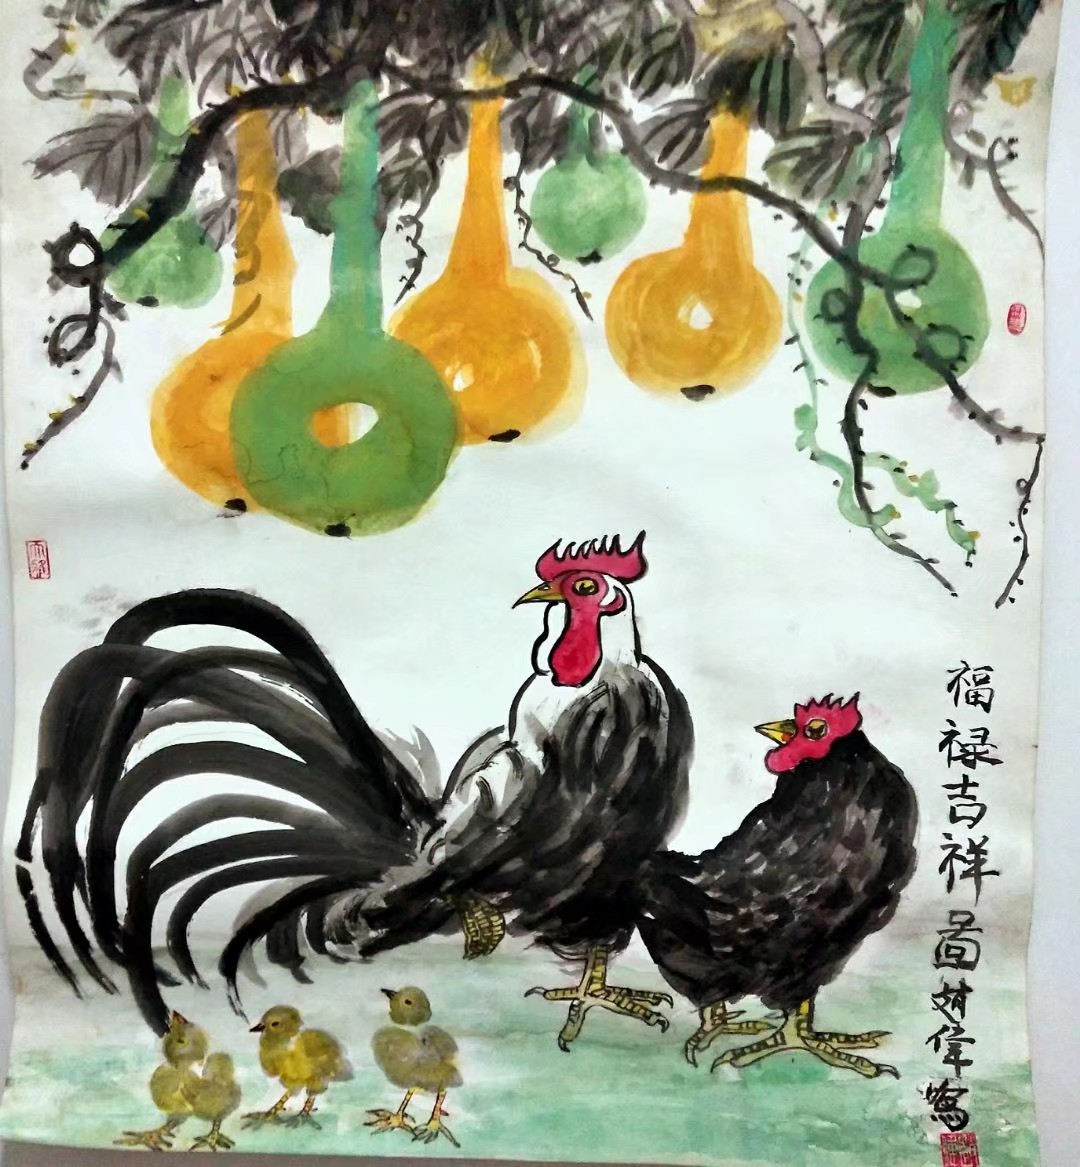 福禄吉祥图婧伟写